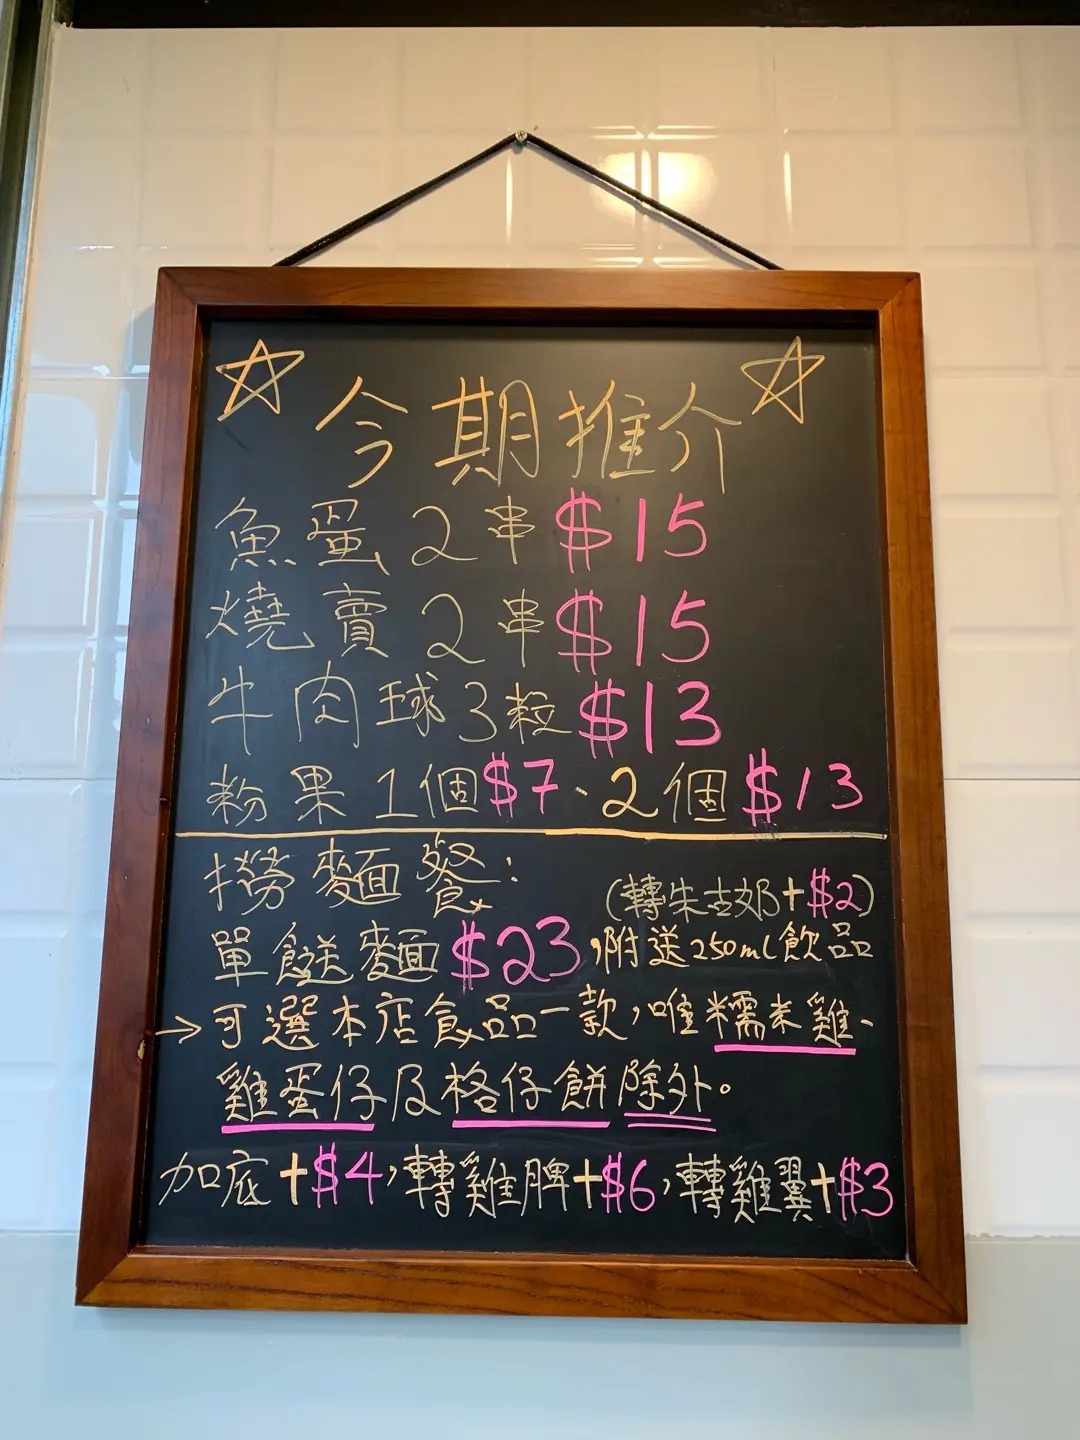 今期推介
魚蛋2串$15
燒賣2串$15
牛肉球3粒$13
粉果1個$7、2個$13
撈麵餐：
(轉朱古奶+$2)
單餸麵$23，附送250mL飲品
→可選本店食品一款，唯糯米雞、
雞蛋仔及格仔餅除外。
加底+$4，轉雞脾+$6，轉雞翼+$3